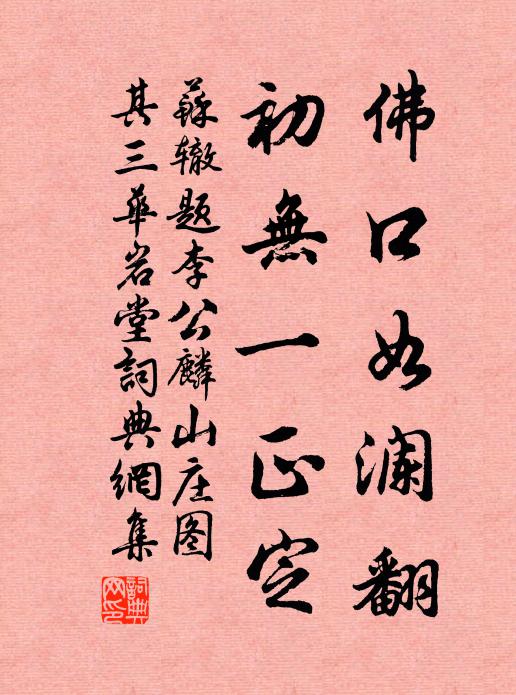 佛口如澜翻
初無一正定
蘇辙题李公麟山庄图
其三華岩堂詞典網集
詞典網印